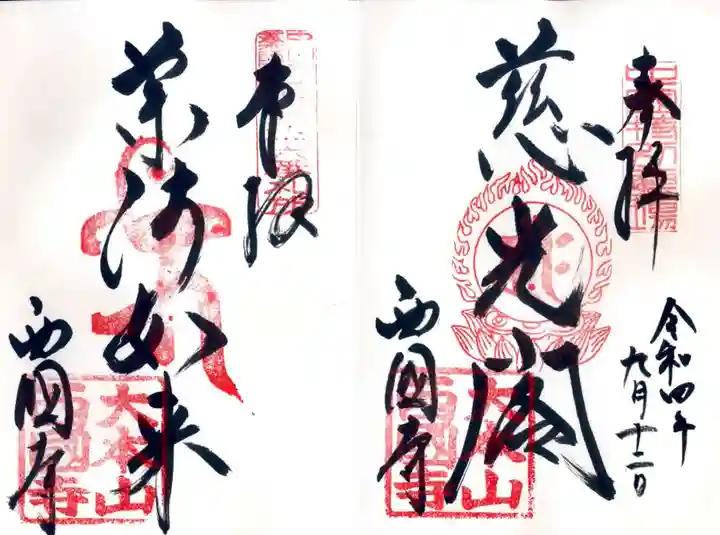 奉拝
慈光閣
令和四年
九月十二日
西國寺
大本山
西國寺
奉拝
薬師如来
西國寺
大本山
西國寺